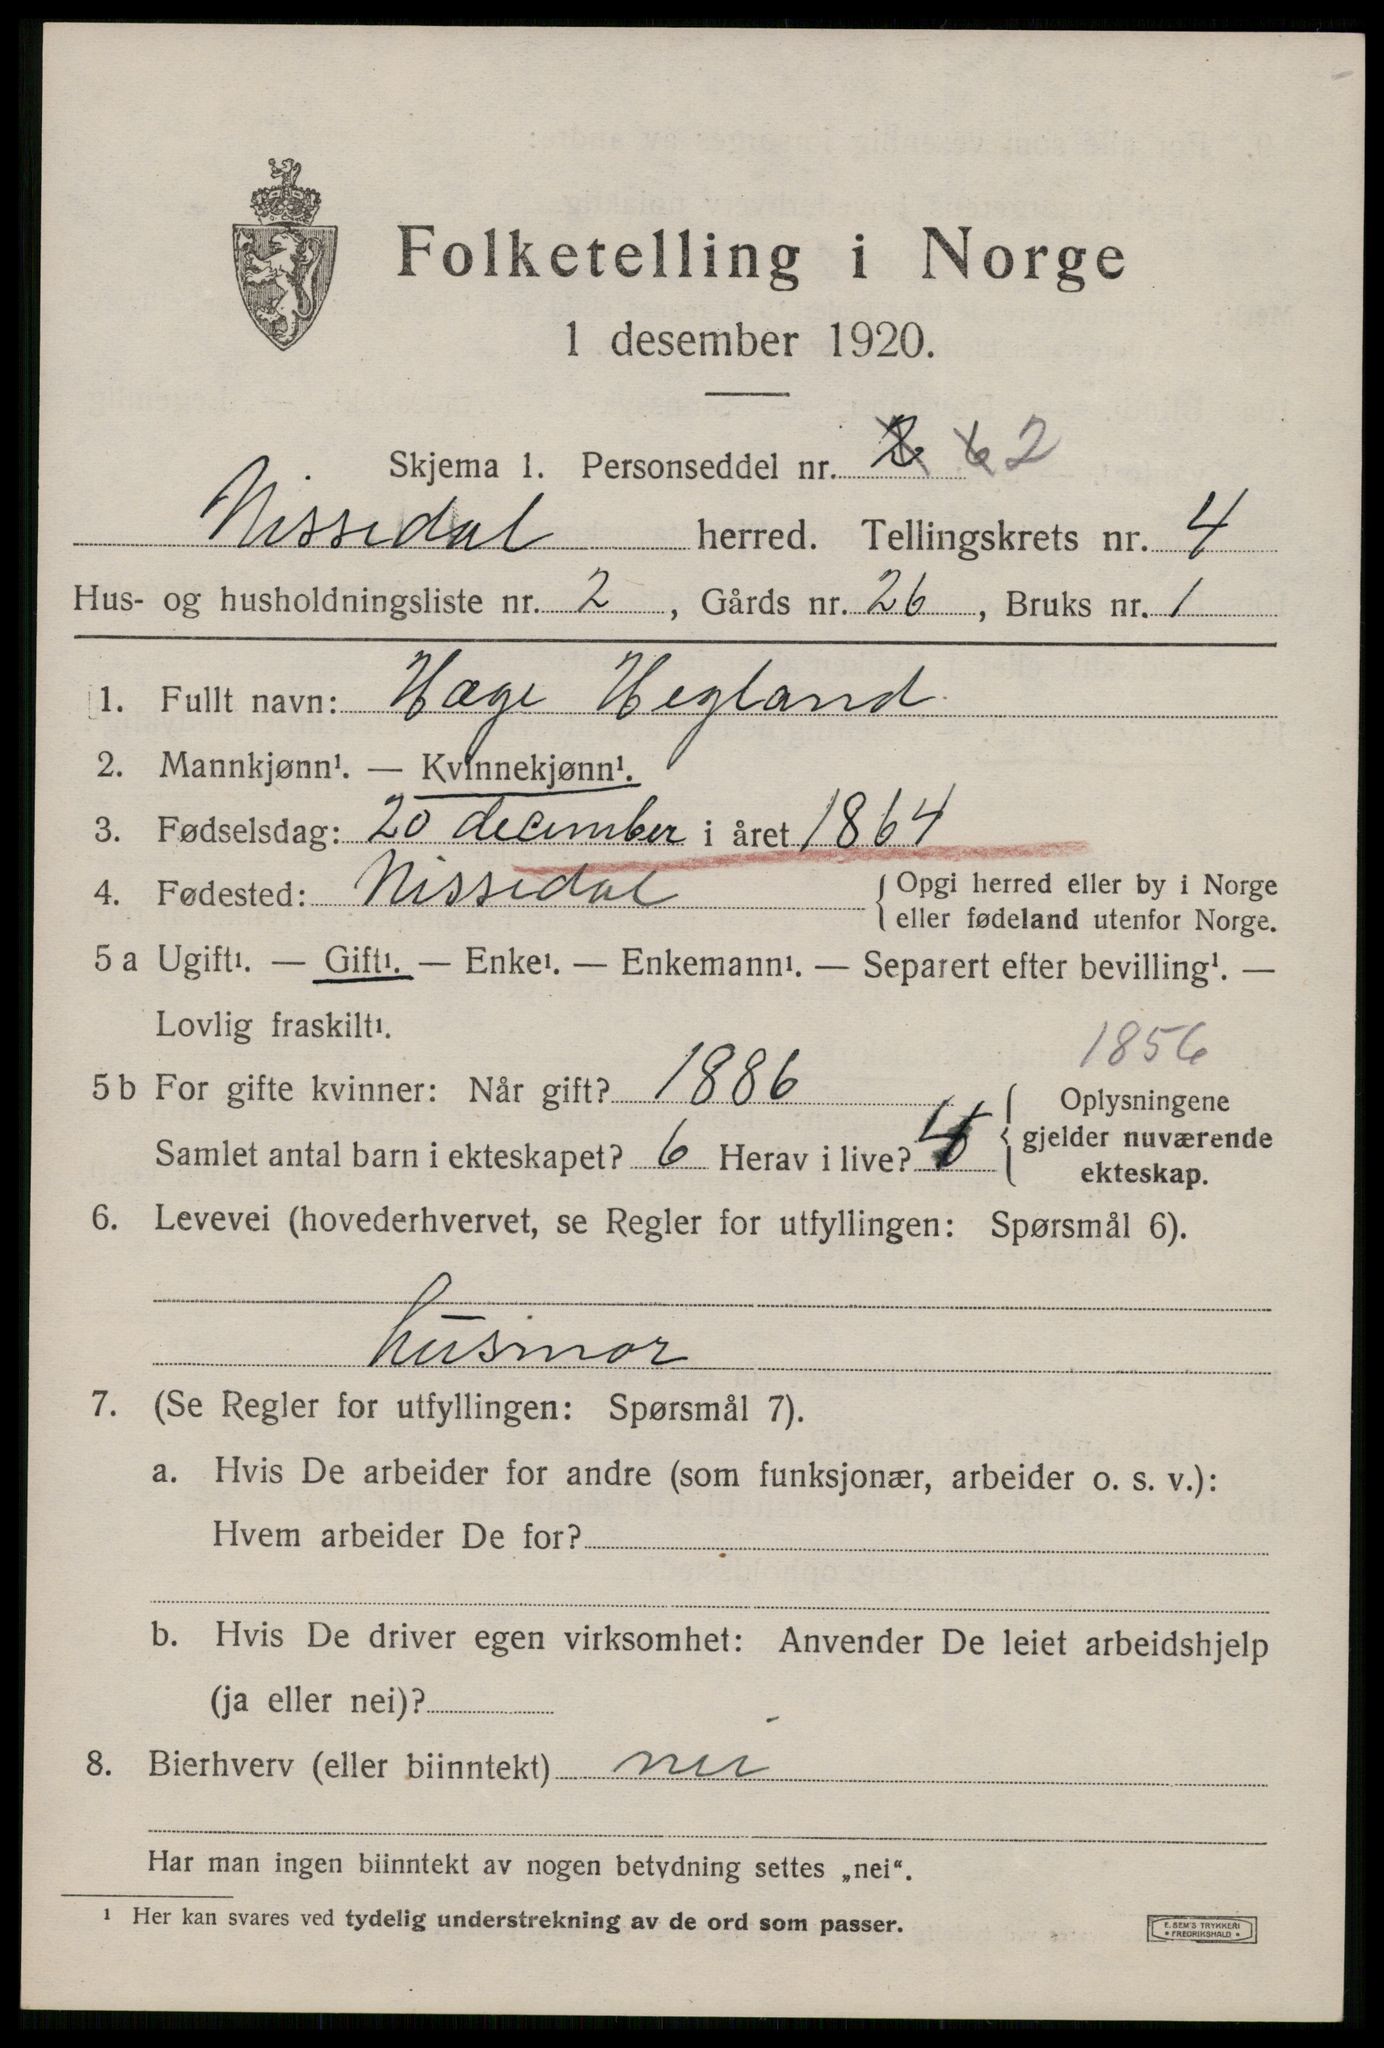 Folketelling i Norge
1 desember 1920.
Skjema 1. Personseddel nr. 2 6 2
Nissedal herred. Tellingskrets nr. 4
Hus- og husholdningsliste nr. 2, Gårds nr. 26, Bruks nr. 1
1. Fullt navn: Hæge Hegland
2. Mannkjønn¹. — Kvinnekjønn¹.
3. Fødselsdag: 20 december i året 1864
4. Fødested: Nissedal {Opgi herred eller by i Norge
eller fødeland utenfor Norge.
5 a Ugift¹. — Gift¹. — Enke¹. — Enkemann¹. — Separert efter bevilling¹. —
Lovlig fraskilt¹.
1856
5 b For gifte kvinner: Når gift? 1886 { Oplysningene
gjelder nuværende
ekteskap.
Samlet antal barn i ekteskapet? 6 Herav i live? 4
6. Levevei (hovederhvervet, se Regler for utfyllingen: Spørsmål 6).
husmor
7. (Se Regler for utfyllingen: Spørsmål 7).
a. Hvis De arbeider for andre (som funksjonær, arbeider o. s. v.):
Hvem arbeider De for?
b. Hvis De driver egen virksomhet: Anvender De leiet arbeidshjelp
(ja eller nei)?
8. Bierhverv (eller biinntekt) nei
Har man ingen biinntekt av nogen betydning settes „nei“.
¹ Her kan svares ved tydelig understrekning av de ord som passer.
E. SEM'S TRYKKERI
* FREDRIKSHALD *